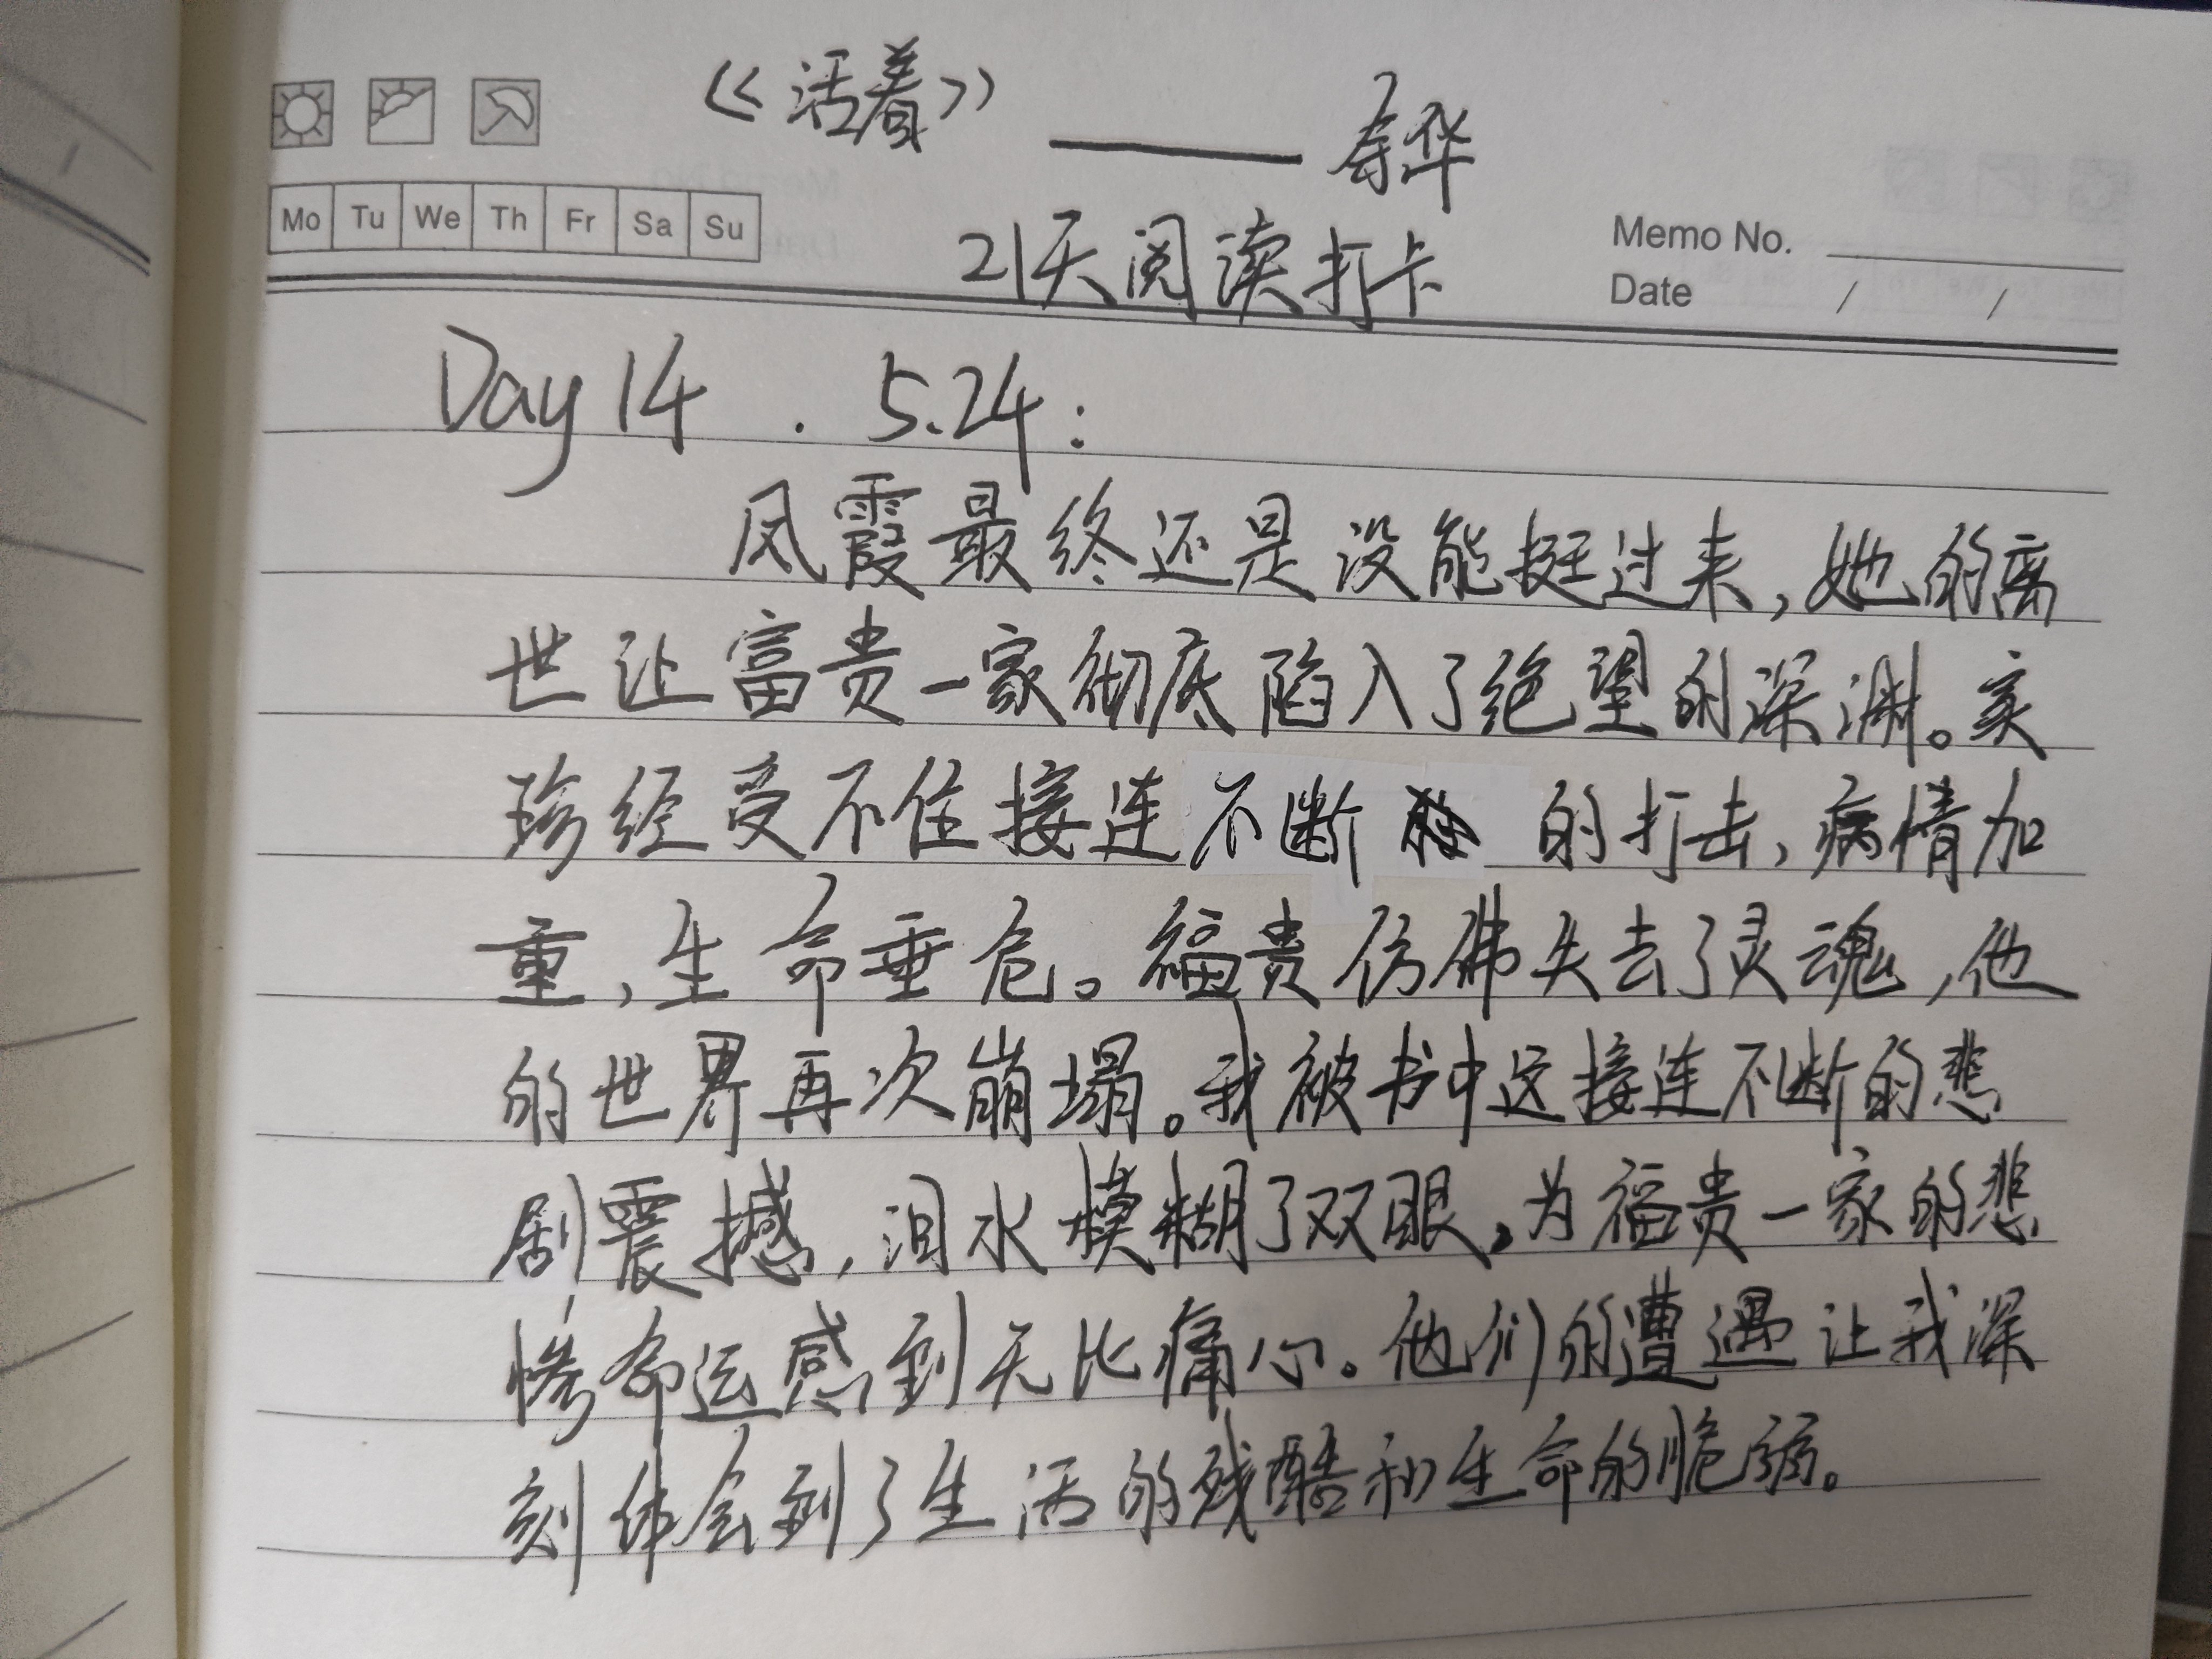 《活着》——余华
Mo Tu We Th Fr Sa Su
21天阅读打卡
Memo No.
Date / /
Day 14 . 5.24:
凤霞最终还是没能挺过来,她的离
世让富贵一家彻底陷入了绝望的深渊。家
珍经受不住接连不断 的打击,病情加
重,生命垂危。福贵仿佛失去了灵魂,他
的世界再次崩塌。我被书中这接连不断的悲
剧震撼,泪水模糊了双眼,为福贵一家的悲
惨命运感到无比痛心。他们的遭遇让我深
刻体会到了生活的残酷和生命的脆弱。